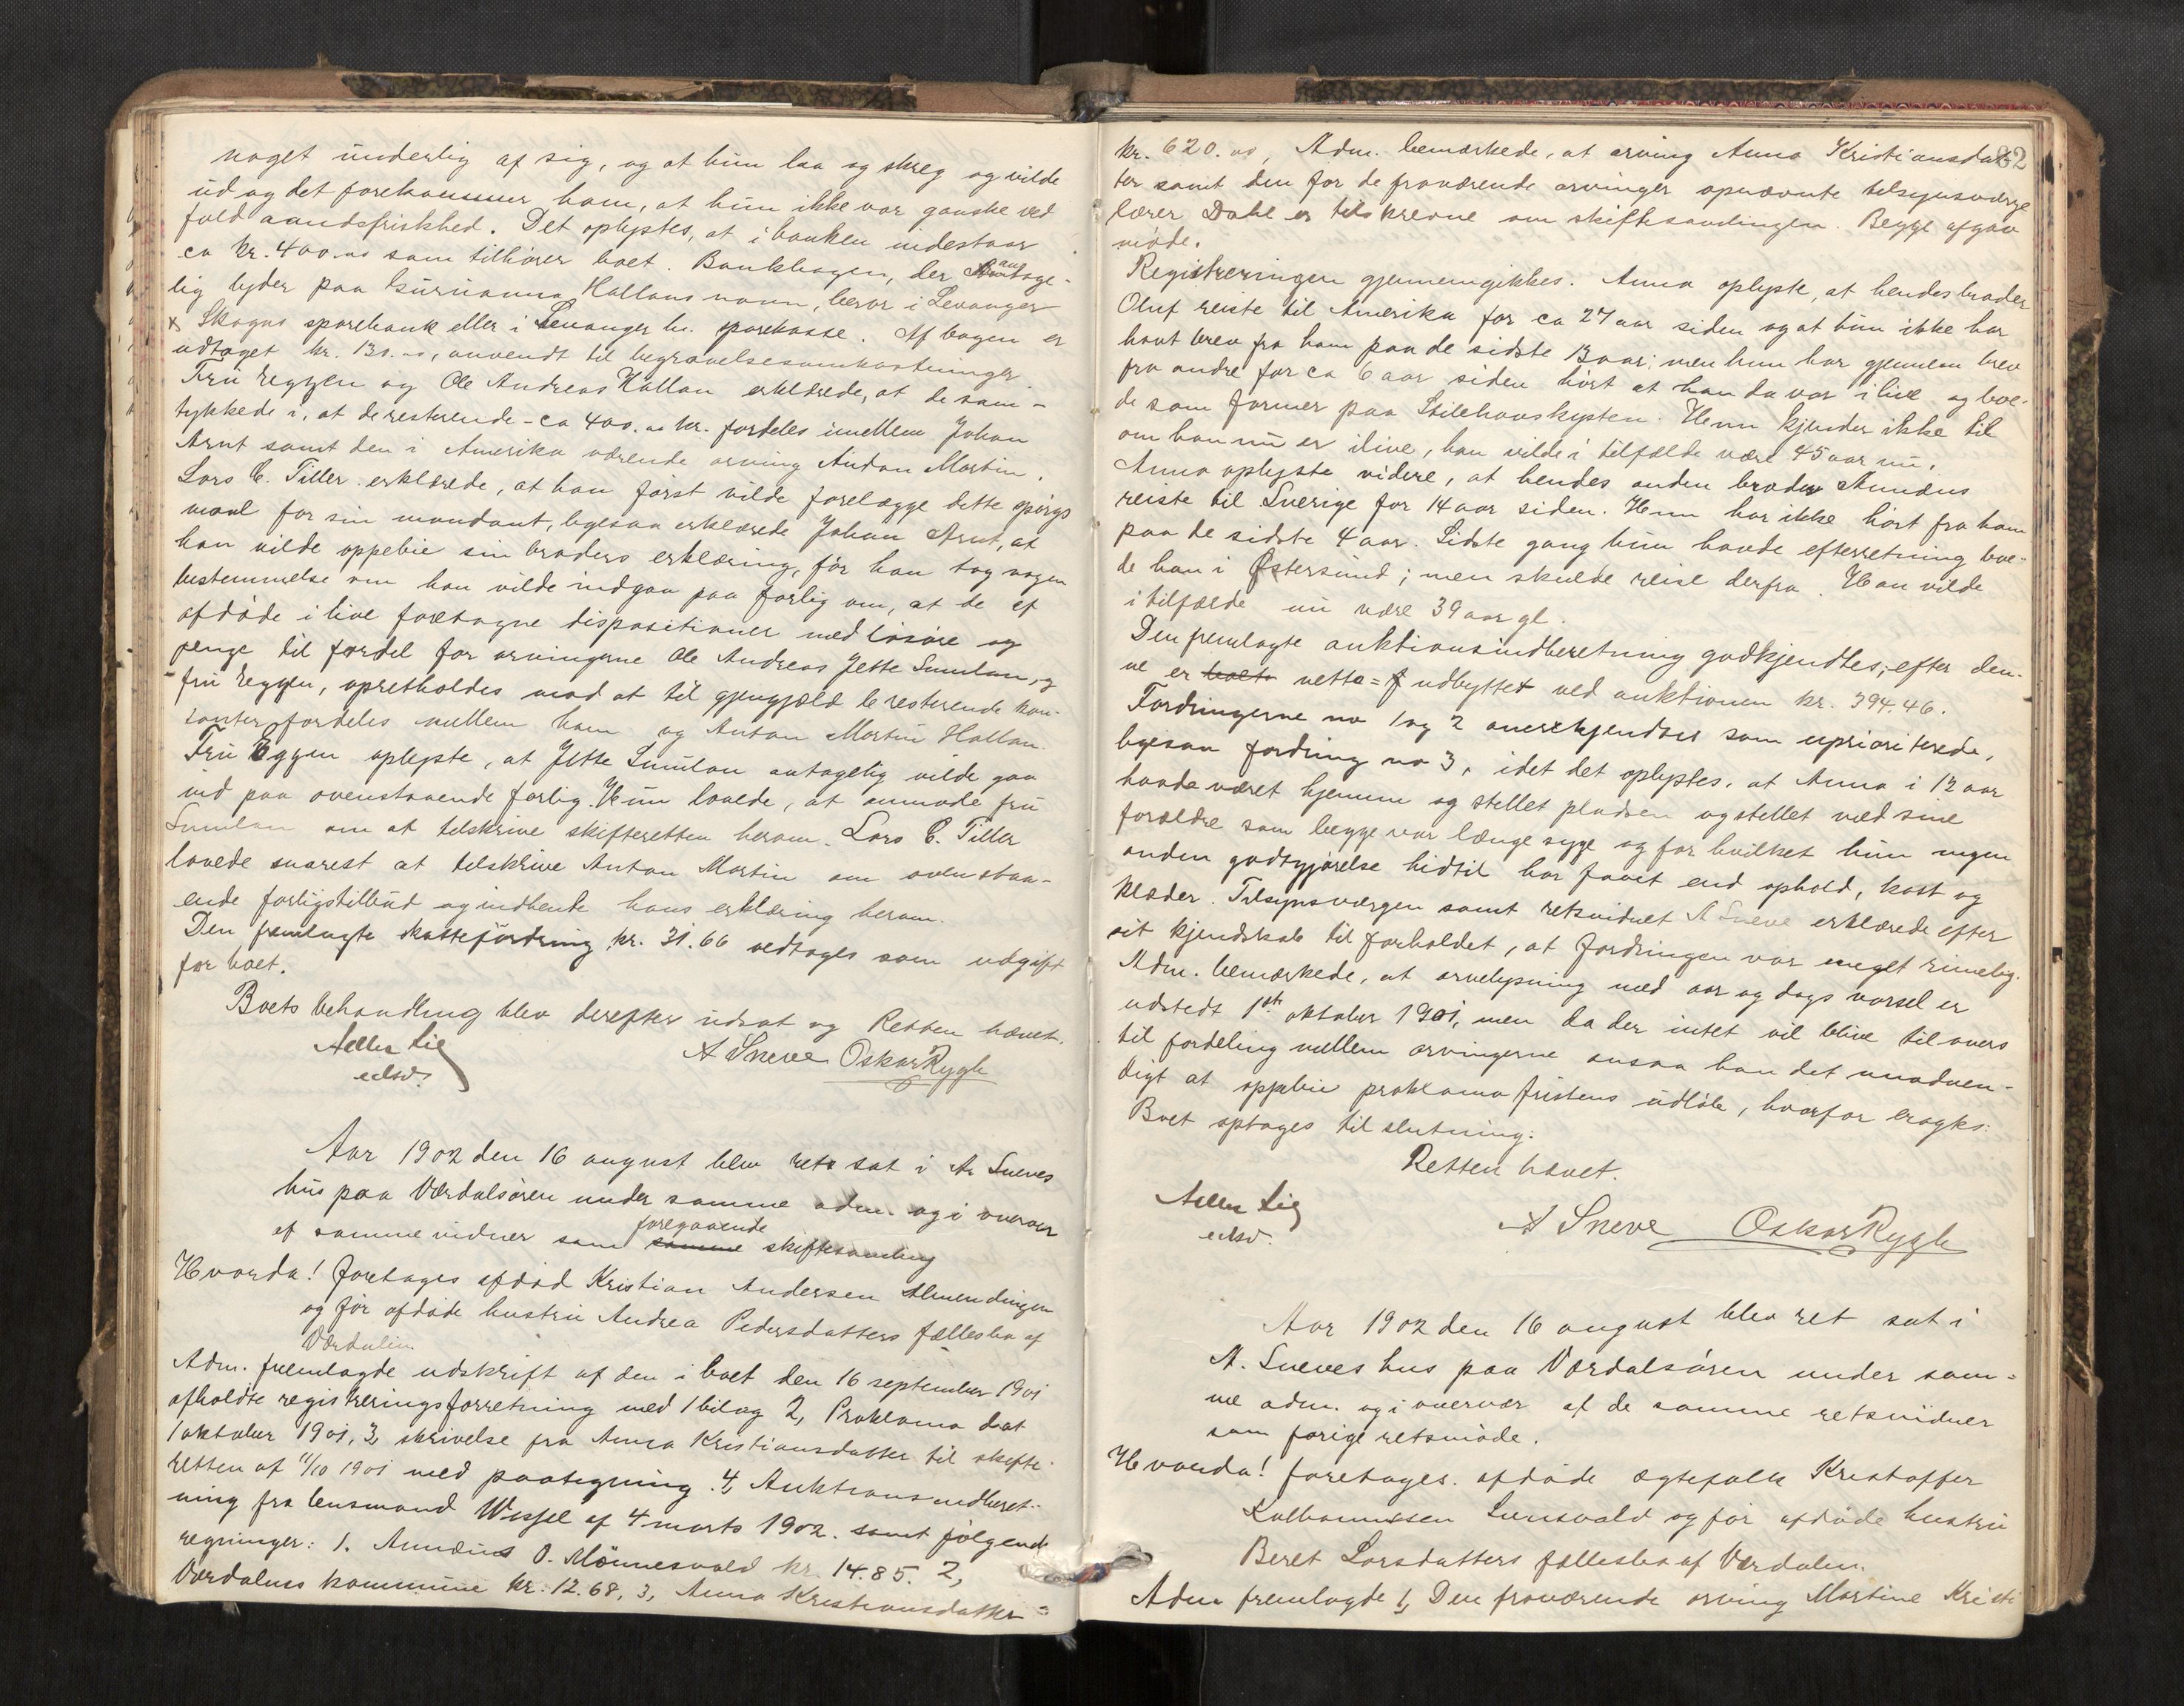 noget underlig af sig, og at hun laa og skreg og vilde
ud og det forekommer ham, at hun ikke var ganske ved
fuld aandsfriskhed. Det oplystes, at i banken indestaar
ca kr. 400.00 som tilhører boet. Bankbogen, der antage-
lig lyder paa Guruanna Hallans navn, beror i Levanger
& Skogns sparebank eller i Levanger bs. sparekasse. Af bogen er
udtaget kr. 130.00, anvendt til begravelsesomkostninger.
Fru Eggen og Ole Andreas Hallan erklærede, at de sam-
tykkede i, at de resterende - ca 400.00 kr. fordeles imellem Johan
Arnt samt den i Amerika værende arving Anton Martin.
Lars C. Tiller erklærede, at han først vilde forelægge dette spørgs
maal for sin mandant, ligesaa erklærede Johan Arnt, at
han vilde oppebie sin broders erklæring, før han tog nogen
bestemmelse om han vilde indgaa paa forlig om, at de af
afdøde i live foretagne dispositioner med løsøre og
penge til fordel for arvingerne Ole Andreas, Jette Sumlan, og
fru Eggen, opretholdes mod at til gjengjæld de resterende kon-
tanter fordeles mellem ham og Anton Martin Hallan.
Fru Eggen oplyste, at Jette Sumlan antagelig vilde gaa
ind paa ovenstaaende forlig. Hun lovede, at anmode fru
Sumlan om at tilskrive skifteretten herom. Lars C. Tiller
lovede snarest at tilskrive Anton Martin om ovenstaa-
ende forligstilbud og indhente hans erklæring herom.
Den fremlagte skattefordring kr. 31.66 vedtages som udgift
for boet.
Boets behandling blev derefter udsat og Retten hævet.
Aeller Lie
edsv.
A Sneve Oskar Rygh
Aar 1902 den 16 august blev ret sat i A. Sneves
hus paa Værdalsøren under samme adm. og i overvær
af samme vidner som samme foregaaende skiftesamling
Hvorda! foretages afdød Kristian Andersen Almendingen
og før afdøde hustru Andrea Pedersdatters fællesbo af
Værdalen.
Adm. fremlagde udskrift af den i boet den 16 september 1901
afholdte registreringsforretning med 1 bilag 2, Proklama dat
1 oktober 1901, 3, skrivelse fra Anna Kristiansdatter til skifte-
retten af 11/10 1901 med paategning. 4, Auktionsindberet-
ning fra lensmand Wessel af 4 marts 1902. samt følgende
regninger: 1. Annæus O. Mønnesvald kr. 14.85. 2,
Værdalens kommune kr. 12.68, 3, Anna Kristiansdatter =
82
kr. 620.00, Adm. bemærkede, at arving Anna Kristiansdat-
ter samt den for de fraværende arvinger opnævnte tilsynsværge
lærer Dahl er tilskrevne om skiftesamlingen. Begge afgav
møde.
Registreringen gjennemgikkes. Anna oplyste, at hendes broder
Oluf reiste til Amerika for ca 27 aar siden og at hun ikke har
havt brev fra ham paa de sidste 13 aar; men hun har gjennem brev
fra andre for ca 6 aar siden hørt at han da var i live og boe-
de som farmer paa Stilehavskysten. Hun kjender ikke til
om han nu er ilive, han vilde i tilfælde være 45 aar nu.
Anna oplyste videre, at hendes anden broder Annæus
reiste til Sverige for 14 aar siden. Hun har ikke hørt fra ham
paa de sidste 4 aar. Sidste gang hun havde efterretning boe-
de han i Østersund; men skulde reise derfra. Han vilde
i tilfælde nu være 39 aar gl.
Den fremlagte auktionsindberetning godkjendtes; efter den-
ne er boets netto= udbyttet ved auktionen kr. 394.46.
Fordringerne no 1 og 2 anerkjendtes som uprioriterede,
ligesaa fordring no 3, idet det oplystes, at Anna i 12 aar
havde været hjemme og stellet pladsen og stellet med sine
forældre som begge var længe syge og for hvilket hun ingen
anden godtgjørelse hidtil har faaet end ophold, kost og
klæder. Tilsynsværgen samt retsvidnet A Sneve erklærede efter
sit kjendskab til forholdet, at fordringen var meget rimelig.
Adm. bemærkede, at arvelysning med aar og dags varsel er
udstedt 1st oktober 1901, men da der intet vil blive tilovers
til fordeling mellem arvingerne ansaa han det unødven-
digt at oppebie proklamafristens udløb, hvorfor eragtes:
Boet optages til slutning.
Retten hævet.
Aeller Lie
edsv.
A Sneve Oskar Rygh
Aar 1902 den 16 august blev ret sat i
A. Sneves hus paa Værdalsøren under sam-
me adm. og i overvær af de samme retsvidner
som forige retsmøde.
Hvorda! foretages. afdøde ægtefolk Kristoffer
Kolbanussen Sunsvald og før afdøde hustru
Beret Larsdatters fællesbo af Værdalen.
Adm fremlagde 1, Den fraværende arving Martine Kristi